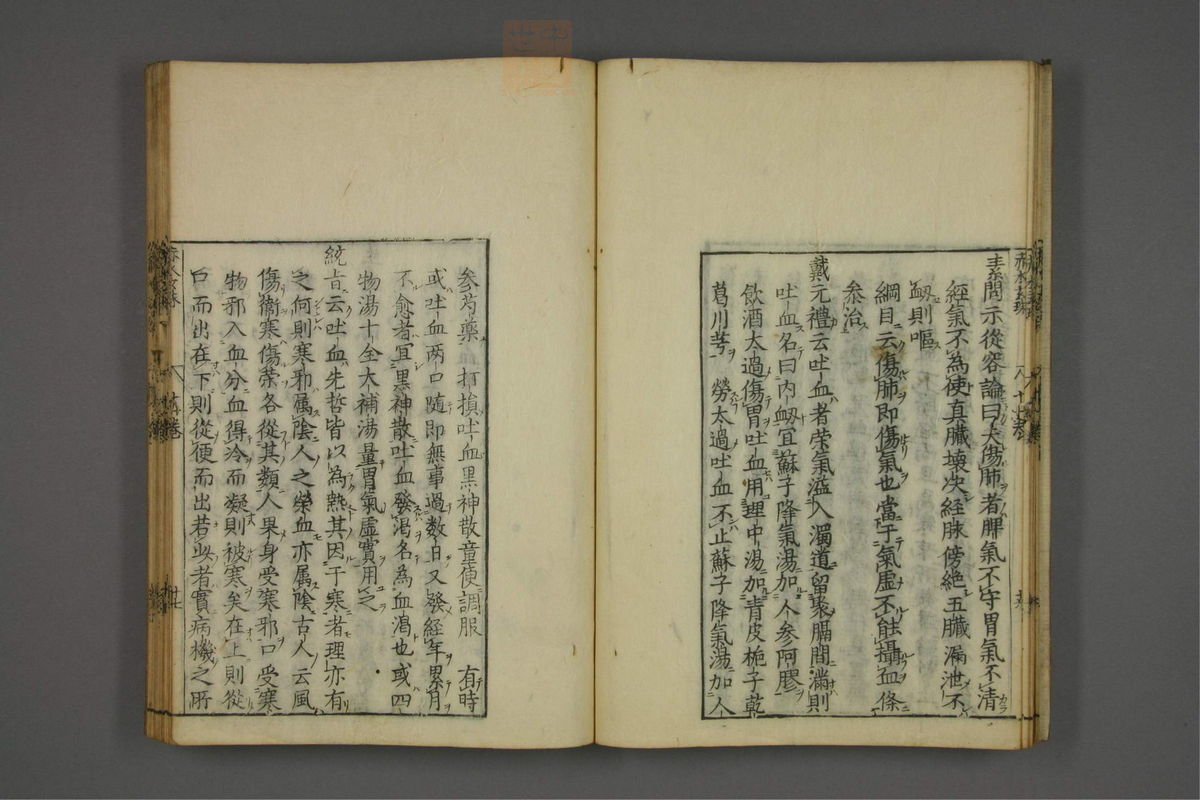 素問示從容論曰夫傷肺者脾氣不守胃氣不清
經氣不為使真臟壞决經脉傍絶五臟漏泄不
衂則嘔
綱目云傷肺即傷氣也當于氣虛不能攝血條
參治
戴元禮云吐血者荣氣溢入濁道留聚膈間滿則
吐血名曰内衂宜蘇子降氣湯加人參阿膠
飲酒太過傷胃吐血用理中湯加青皮梔子乾
葛川芎　勞太過吐血不止蘇子降氣湯加人
參芍藥　打損吐血黑神散童便調服　有時
或吐血两口随即無事過数日又發經年累月
不愈者宜黑神散吐血發渴名為血渴也或四
物湯十全大補湯量胃氣虛實用之
統旨云吐血先哲皆以為熱其因于寒者理亦有
之何則寒邪属陰人之榮血亦属陰古人云風
傷衞寒傷荣各從其類人果身受寒邪口受寒
物邪入血分血得冷而凝則被寒矣在上則從
口而出在下則從便而出若此者實病機之所